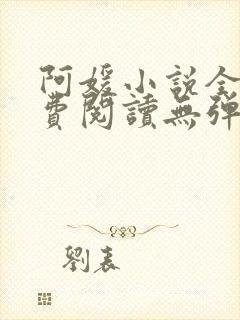 阿媛小説全
費閱讀無彈
劉表